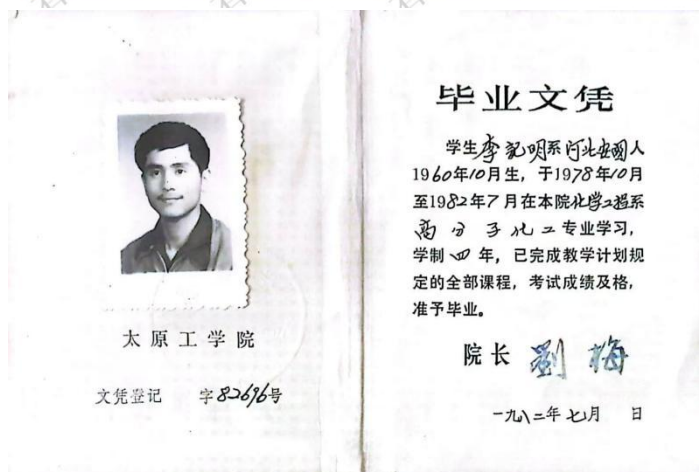 太原工学院
文凭登记 字82696号
毕业文凭
学生李配明系河北安国人
1960年10月生，于1978年10月
至1982年7月在本院化学工程系
高分子化工专业学习，
学制四年，已完成教学计划规
定的全部课程，考试成绩及格，
准予毕业。
院长 劉梅
一九八二年七月 日